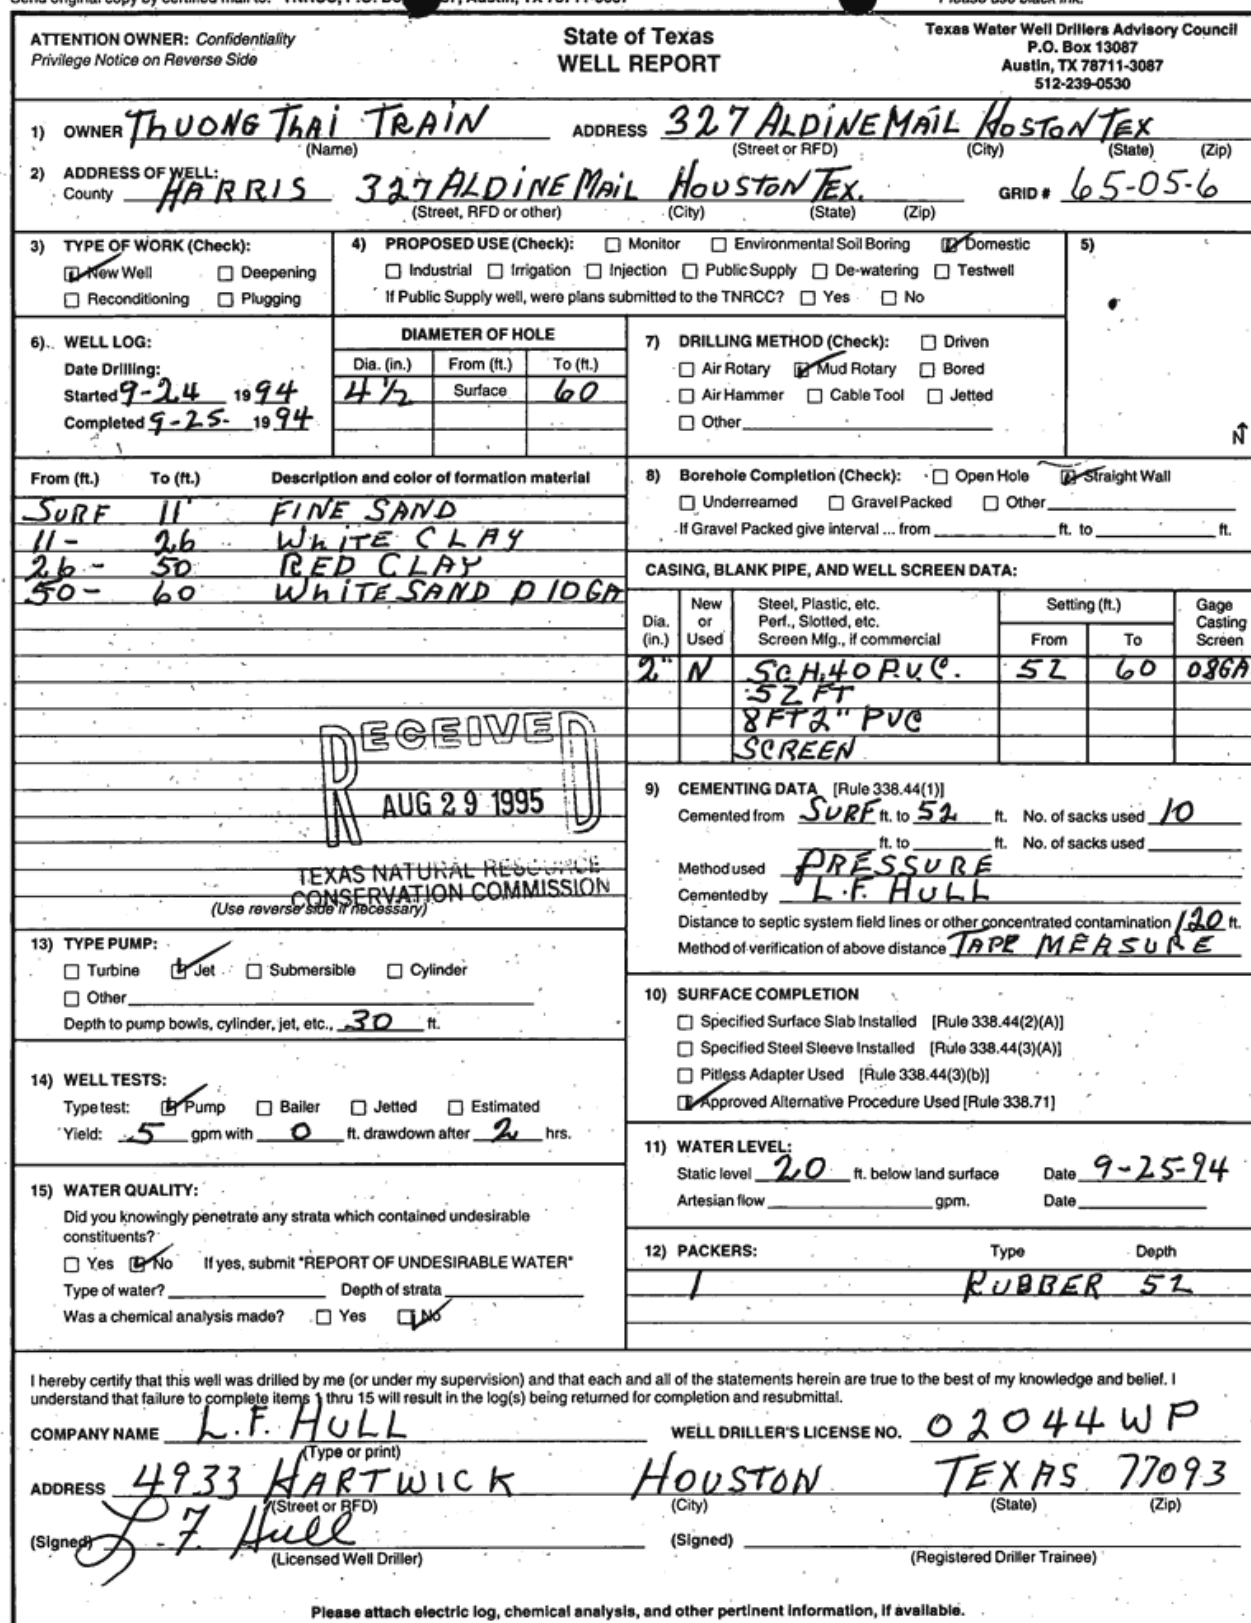 ATTENTION OWNER: Confidentiality
Privilege Notice on Reverse Side
State of Texas
WELL REPORT
Texas Water Well Drillers Advisory Council
P.O. Box 13087
Austin, TX 78711-3087
512-239-0530
1) OWNER THUONG THAI TRAIN ADDRESS 327 ALDINE MAIL HOSTON TEX
(Name) (Street or RFD) (City) (State) (Zip)
2) ADDRESS OF WELL:
County HARRIS 327 ALDINE MAIL HOUSTON TEX. GRID # 65-05-6
(Street, RFD or other) (City) (State) (Zip)
3) TYPE OF WORK (Check):
New Well Deepening
Reconditioning Plugging
4) PROPOSED USE (Check): Monitor Environmental Soil Boring Domestic
Industrial Irrigation Injection Public Supply De-watering Testwell
If Public Supply well, were plans submitted to the TNRCC? Yes No
5)
N
6) WELL LOG:
Date Drilling:
Started 9-24 1994
Completed 9-25- 1994
DIAMETER OF HOLE
Dia. (in.) From (ft.) To (ft.)
4 1/2 Surface 60
7) DRILLING METHOD (Check): Driven
Air Rotary Mud Rotary Bored
Air Hammer Cable Tool Jetted
Other
From (ft.) To (ft.) Description and color of formation material
SURF 11' FINE SAND
11- 26 WHITE CLAY
26- 50 RED CLAY
50- 60 WHITE SAND D 10GA
RECEIVED
AUG 29 1995
TEXAS NATURAL RESOURCE
CONSERVATION COMMISSION
(Use reverse side if necessary)
8) Borehole Completion (Check): Open Hole Straight Wall
Underreamed Gravel Packed Other
If Gravel Packed give interval ... from ft. to ft.
CASING, BLANK PIPE, AND WELL SCREEN DATA:
Dia. (in.) New or Used Steel, Plastic, etc. Perf., Slotted, etc. Screen Mfg., if commercial Setting (ft.) From To Gage Casting Screen
2" N SCH.40 P.V.C. 52 60 08GA
52 FT
8FT 2" PVC
SCREEN
9) CEMENTING DATA [Rule 338.44(1)]
Cemented from SURF ft. to 52 ft. No. of sacks used 10
ft. to ft. No. of sacks used
Method used PRESSURE
Cemented by L.F. HULL
Distance to septic system field lines or other concentrated contamination 120 ft.
Method of verification of above distance TAPE MEASURE
13) TYPE PUMP:
Turbine Jet Submersible Cylinder
Other
Depth to pump bowls, cylinder, jet, etc., 30 ft.
10) SURFACE COMPLETION
Specified Surface Slab Installed [Rule 338.44(2)(A)]
Specified Steel Sleeve Installed [Rule 338.44(3)(A)]
Pitless Adapter Used [Rule 338.44(3)(b)]
Approved Alternative Procedure Used [Rule 338.71]
14) WELL TESTS:
Type test: Pump Bailer Jetted Estimated
Yield: 5 gpm with 0 ft. drawdown after 2 hrs.
11) WATER LEVEL:
Static level 20 ft. below land surface Date 9-25-94
Artesian flow gpm. Date
15) WATER QUALITY:
Did you knowingly penetrate any strata which contained undesirable
constituents?
Yes No If yes, submit "REPORT OF UNDESIRABLE WATER"
Type of water? Depth of strata
Was a chemical analysis made? Yes No
12) PACKERS: Type Depth
1 RUBBER 52
I hereby certify that this well was drilled by me (or under my supervision) and that each and all of the statements herein are true to the best of my knowledge and belief. I
understand that failure to complete items 1 thru 15 will result in the log(s) being returned for completion and resubmittal.
COMPANY NAME L.F. HULL WELL DRILLER'S LICENSE NO. 02044WP
(Type or print)
ADDRESS 4933 HARTWICK HOUSTON TEXAS 77093
(Street or RFD) (City) (State) (Zip)
(Signed) L.F. Hull (Signed)
(Licensed Well Driller) (Registered Driller Trainee)
Please attach electric log, chemical analysis, and other pertinent information, if available.